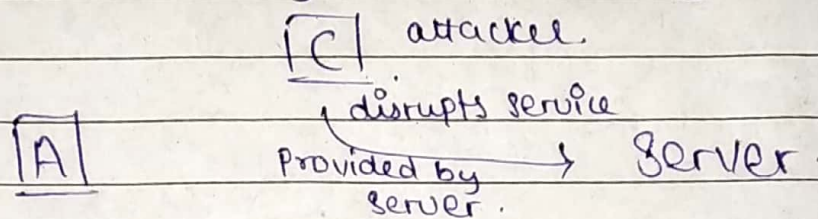 C attacker.
disrupts service
A Provided by Server.
server.